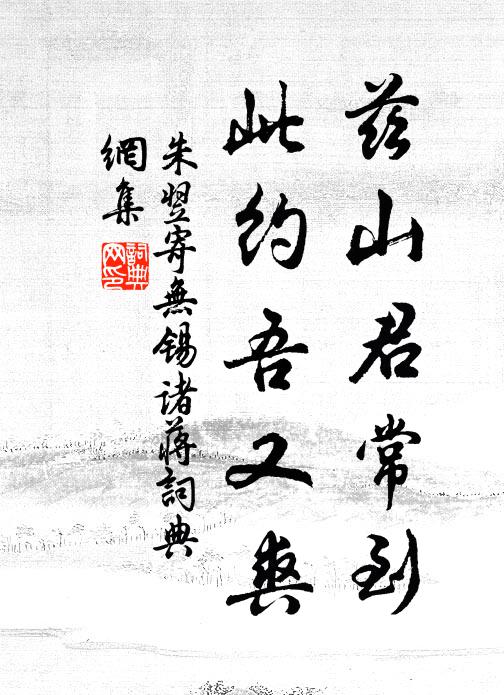 兹山君常到
此約吾又爽
朱翌寄無錫諸蔣詞典
網集
詞典
网印